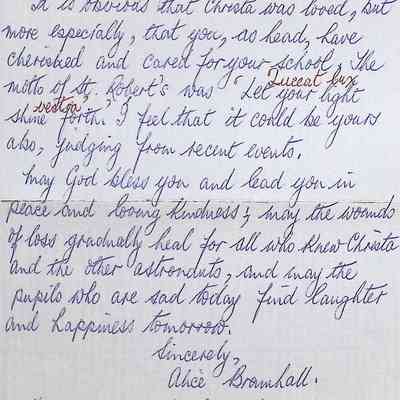 It is obvious that Christa was loved, but
more especially, that you, as head, have
cherished and cared for your school. The
Luceat lux
motto of St. Robert's was "Let your light
vestra
shine forth." I feel that it could be yours
also, judging from recent events.
May God bless you and lead you in
peace and loving kindness; may the wounds
of loss gradually heal for all who knew Christa
and the other astronauts, and may the
pupils who are sad today find laughter
and happiness tomorrow.
Sincerely,
Alice Bramhall.